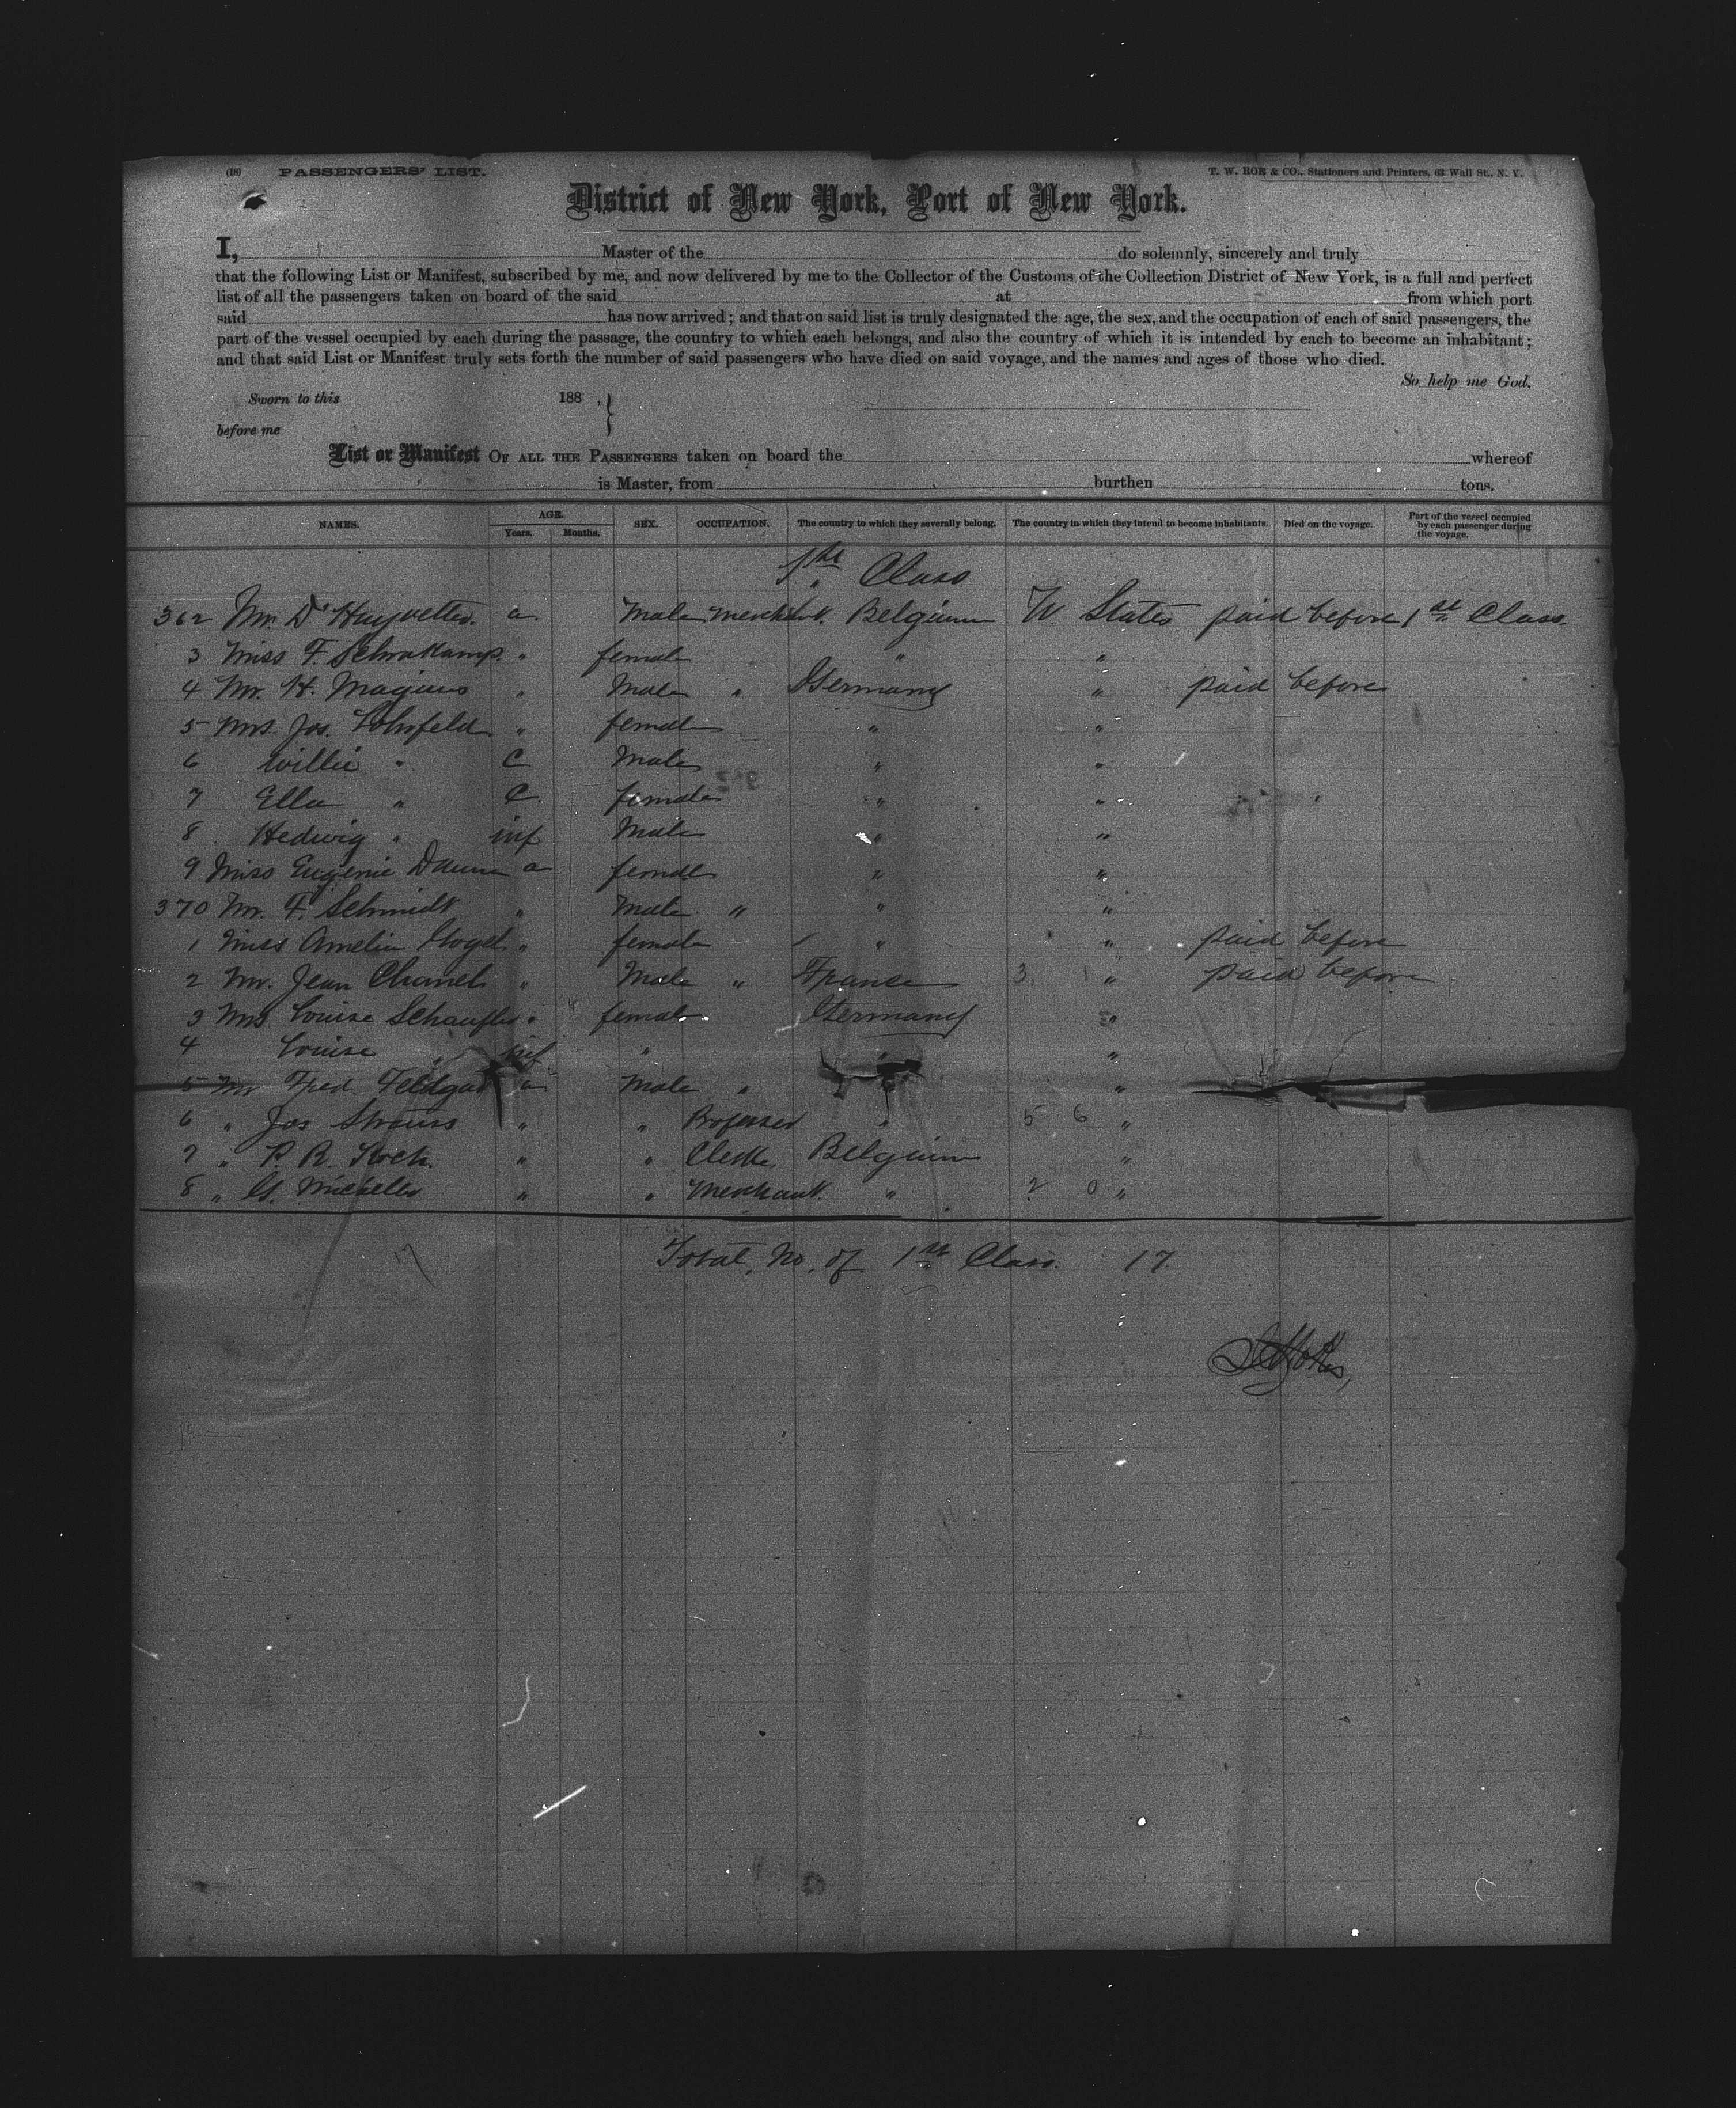 (18) PASSENGERS' LIST. T. W. ROE & CO., Stationers and Printers, 63 Wall St., N. Y.
District of New York, Port of New York.
I, Master of the do solemnly, sincerely and truly
that the following List or Manifest, subscribed by me, and now delivered by me to the Collector of the Customs of the Collection District of New York, is a full and perfect
list of all the passengers taken on board of the said at from which port
said has now arrived; and that on said list is truly designated the age, the sex, and the occupation of each of said passengers, the
part of the vessel occupied by each during the passage, the country to which each belongs, and also the country of which it is intended by each to become an inhabitant;
and that said List or Manifest truly sets forth the number of said passengers who have died on said voyage, and the names and ages of those who died.
So help me God.
Sworn to this 188 ,
before me
List or Manifest OF ALL THE PASSENGERS taken on board the whereof
is Master, from burthen tons.
NAMES. AGE. Years. Months. SEX. OCCUPATION. The country to which they severally belong. The country in which they intend to become inhabitants. Died on the voyage. Part of the vessel occupied by each passenger during the voyage.
1st Class
362 Mr. D' a Male Merchant Belgium U. States paid before 1st Class.
3 Miss F. Schrakamp. " female " "
4 Mr. H. Magnus " Male " Germany " paid before
5 Mrs. Jos. Lohrfeld " female " "
6 Willie " C Male " "
7 Ella " C female " "
8 Hedwig " inf Male " "
9 Miss Eugenie a female " "
370 Mr. F. Schmidt " Male " " "
1 Miss Amelia " female " " paid before
2 Mr. Jean " Male " France " paid before
3 Mrs Louise " female Germany "
4 Louise " inf " " "
5 Mr Fred. a Male " " "
6 " Jos Strauss " " Professor " 5 6 "
7 " P. R. Koch. " " Clerk Belgium "
8 " G. " " Merchant " 2 0 "
Total. No. of 1st Class. 17
17